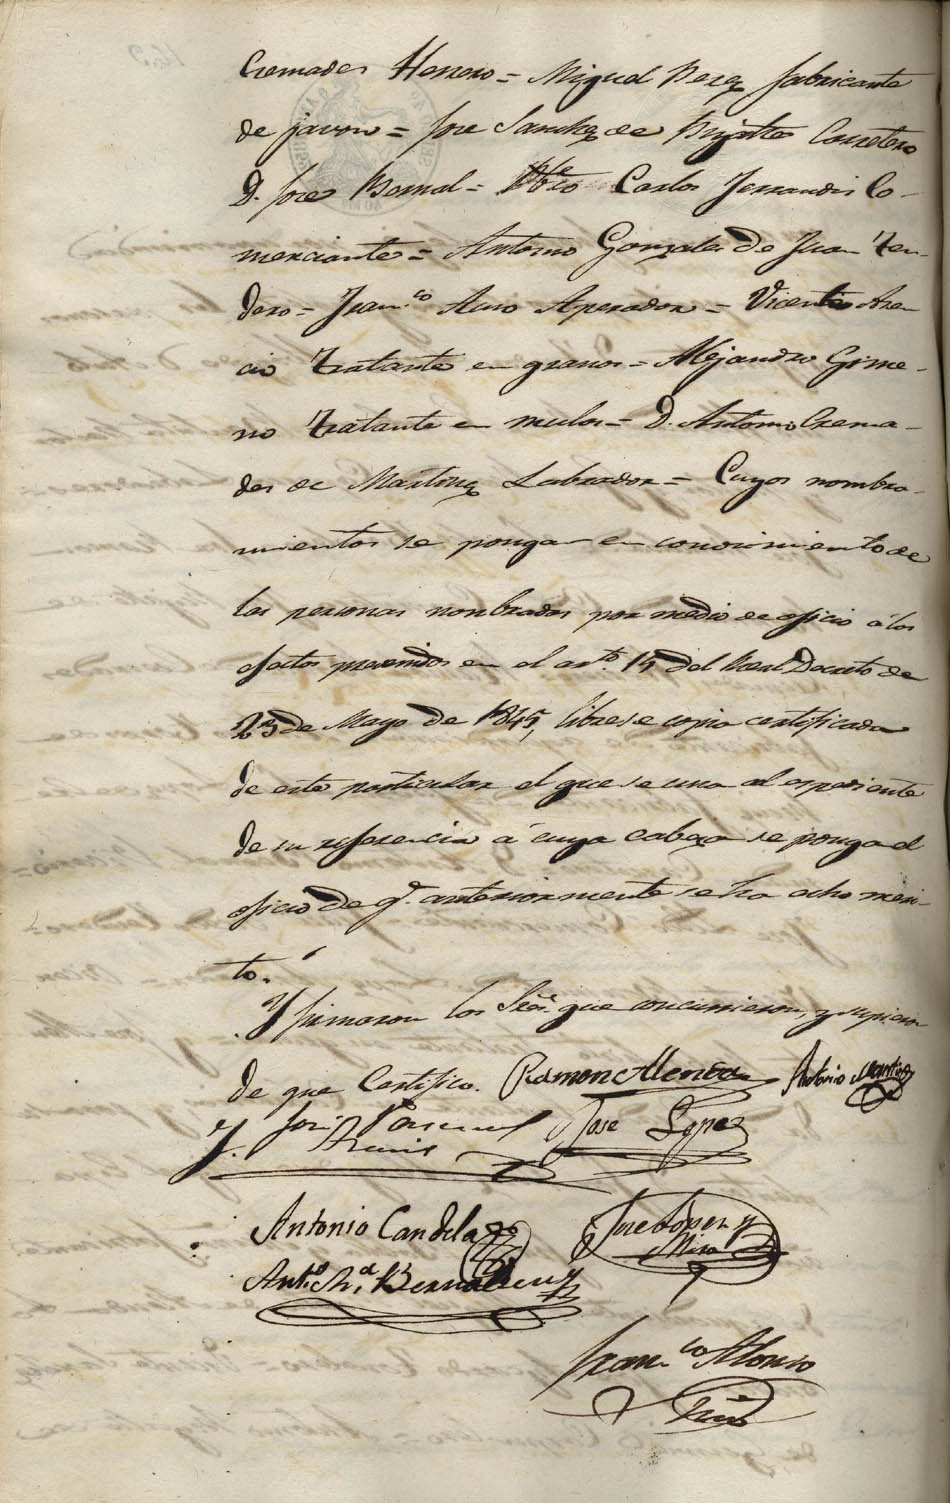 Cremades Herrero = Miguel Perez fabricante
de javon = Jose Sanchez de Carretero
D. Jose Bernal = Carlos Ferrandis Co-
merciante = Antonio Gonzales de Juan Ten-
dero = Fran.co Aperador = Vicente Asen-
cio Tratante en granos = Alejandro Gime-
no Tratante en mulos = D. Antonio Crema-
des de Martinez Labrador = Cuyos nombra-
mientos se pongan en conocimiento de
las personas nombradas por medio de oficio á los
efectos prevenidos en el art.o 15 del Real Decreto de
23 de Mayo de 1845, librese copia certificada
de este particular el que se una al espediente
de su referencia á cuya cabeza se ponga el
oficio de q.e anteriormente se ha echo meri-
to.
Y firmaron los Sres. que concurrieron, y supieron
de que Certifico. Ramon Alenda Antonio Martinez
Jose Pascual Jose Lopez
y
Antonio Candela Jose Lopez y
Mira
Ant.o M.a Bernabeu
Fran.co Alonso